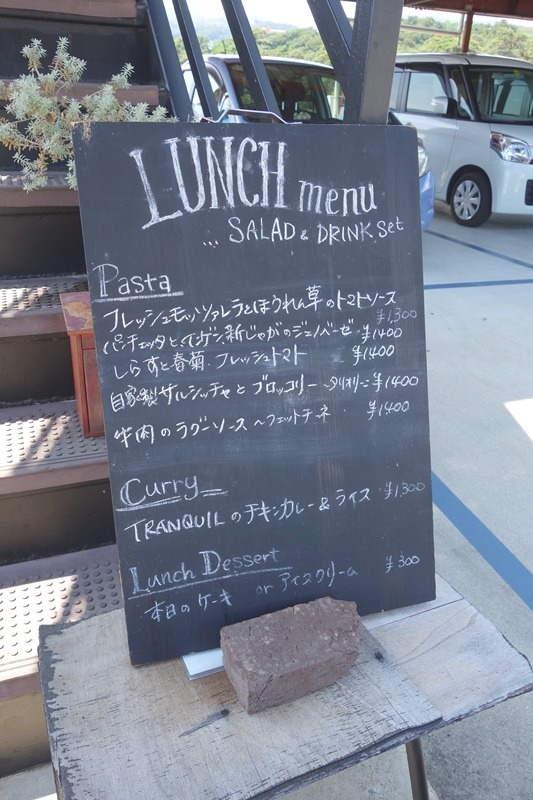 LUNCH menu
... SALAD & DRINK set
Pasta
フレッシュモッツァレラとほうれん草のトマトソース ¥1,300
パンチェッタとインゲン、新じゃがのジェノベーゼ ¥1400
しらすと春菊、フレッシュトマト ¥1400
自家製サルシッチャとブロッコリー ~タリオリーニ ¥1400
牛肉のラグーソース ~フェットチーネ ¥1400
Curry
TRANQUILのチキンカレー&ライス ¥1,300
Lunch Dessert
本日のケーキ or アイスクリーム ¥300